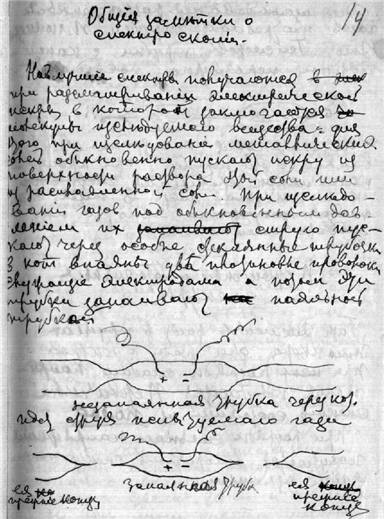 Общія замѣтки о
спектроскопіи.
14
Наилучшіе спектры получаются
при разсматриваніи электрической
искры, въ которой заключаются
молекулы изслѣдуемого вещества: для
этого при изслѣдованіи металлическихъ
солей обыкновенно пускаютъ искру изъ
поверхности раствора этой соли или
изъ расплавленной соли. При изслѣдо-
ваніи газовъ подъ обыкновеннымъ дав-
леніемъ ихъ струю пус-
каютъ черезъ особые стеклянные трубки
въ кот. впаяны двѣ платиновые проволоки
служащіе электродами а потомъ эти
трубки запаиваютъ паяльной
трубкой
+ -
незапаянная трубка черезъ кот.
идетъ струя изслѣдуемаго газа
+ -
запаянная трубка
ея
прежніе концы
ея
прежніе
концы